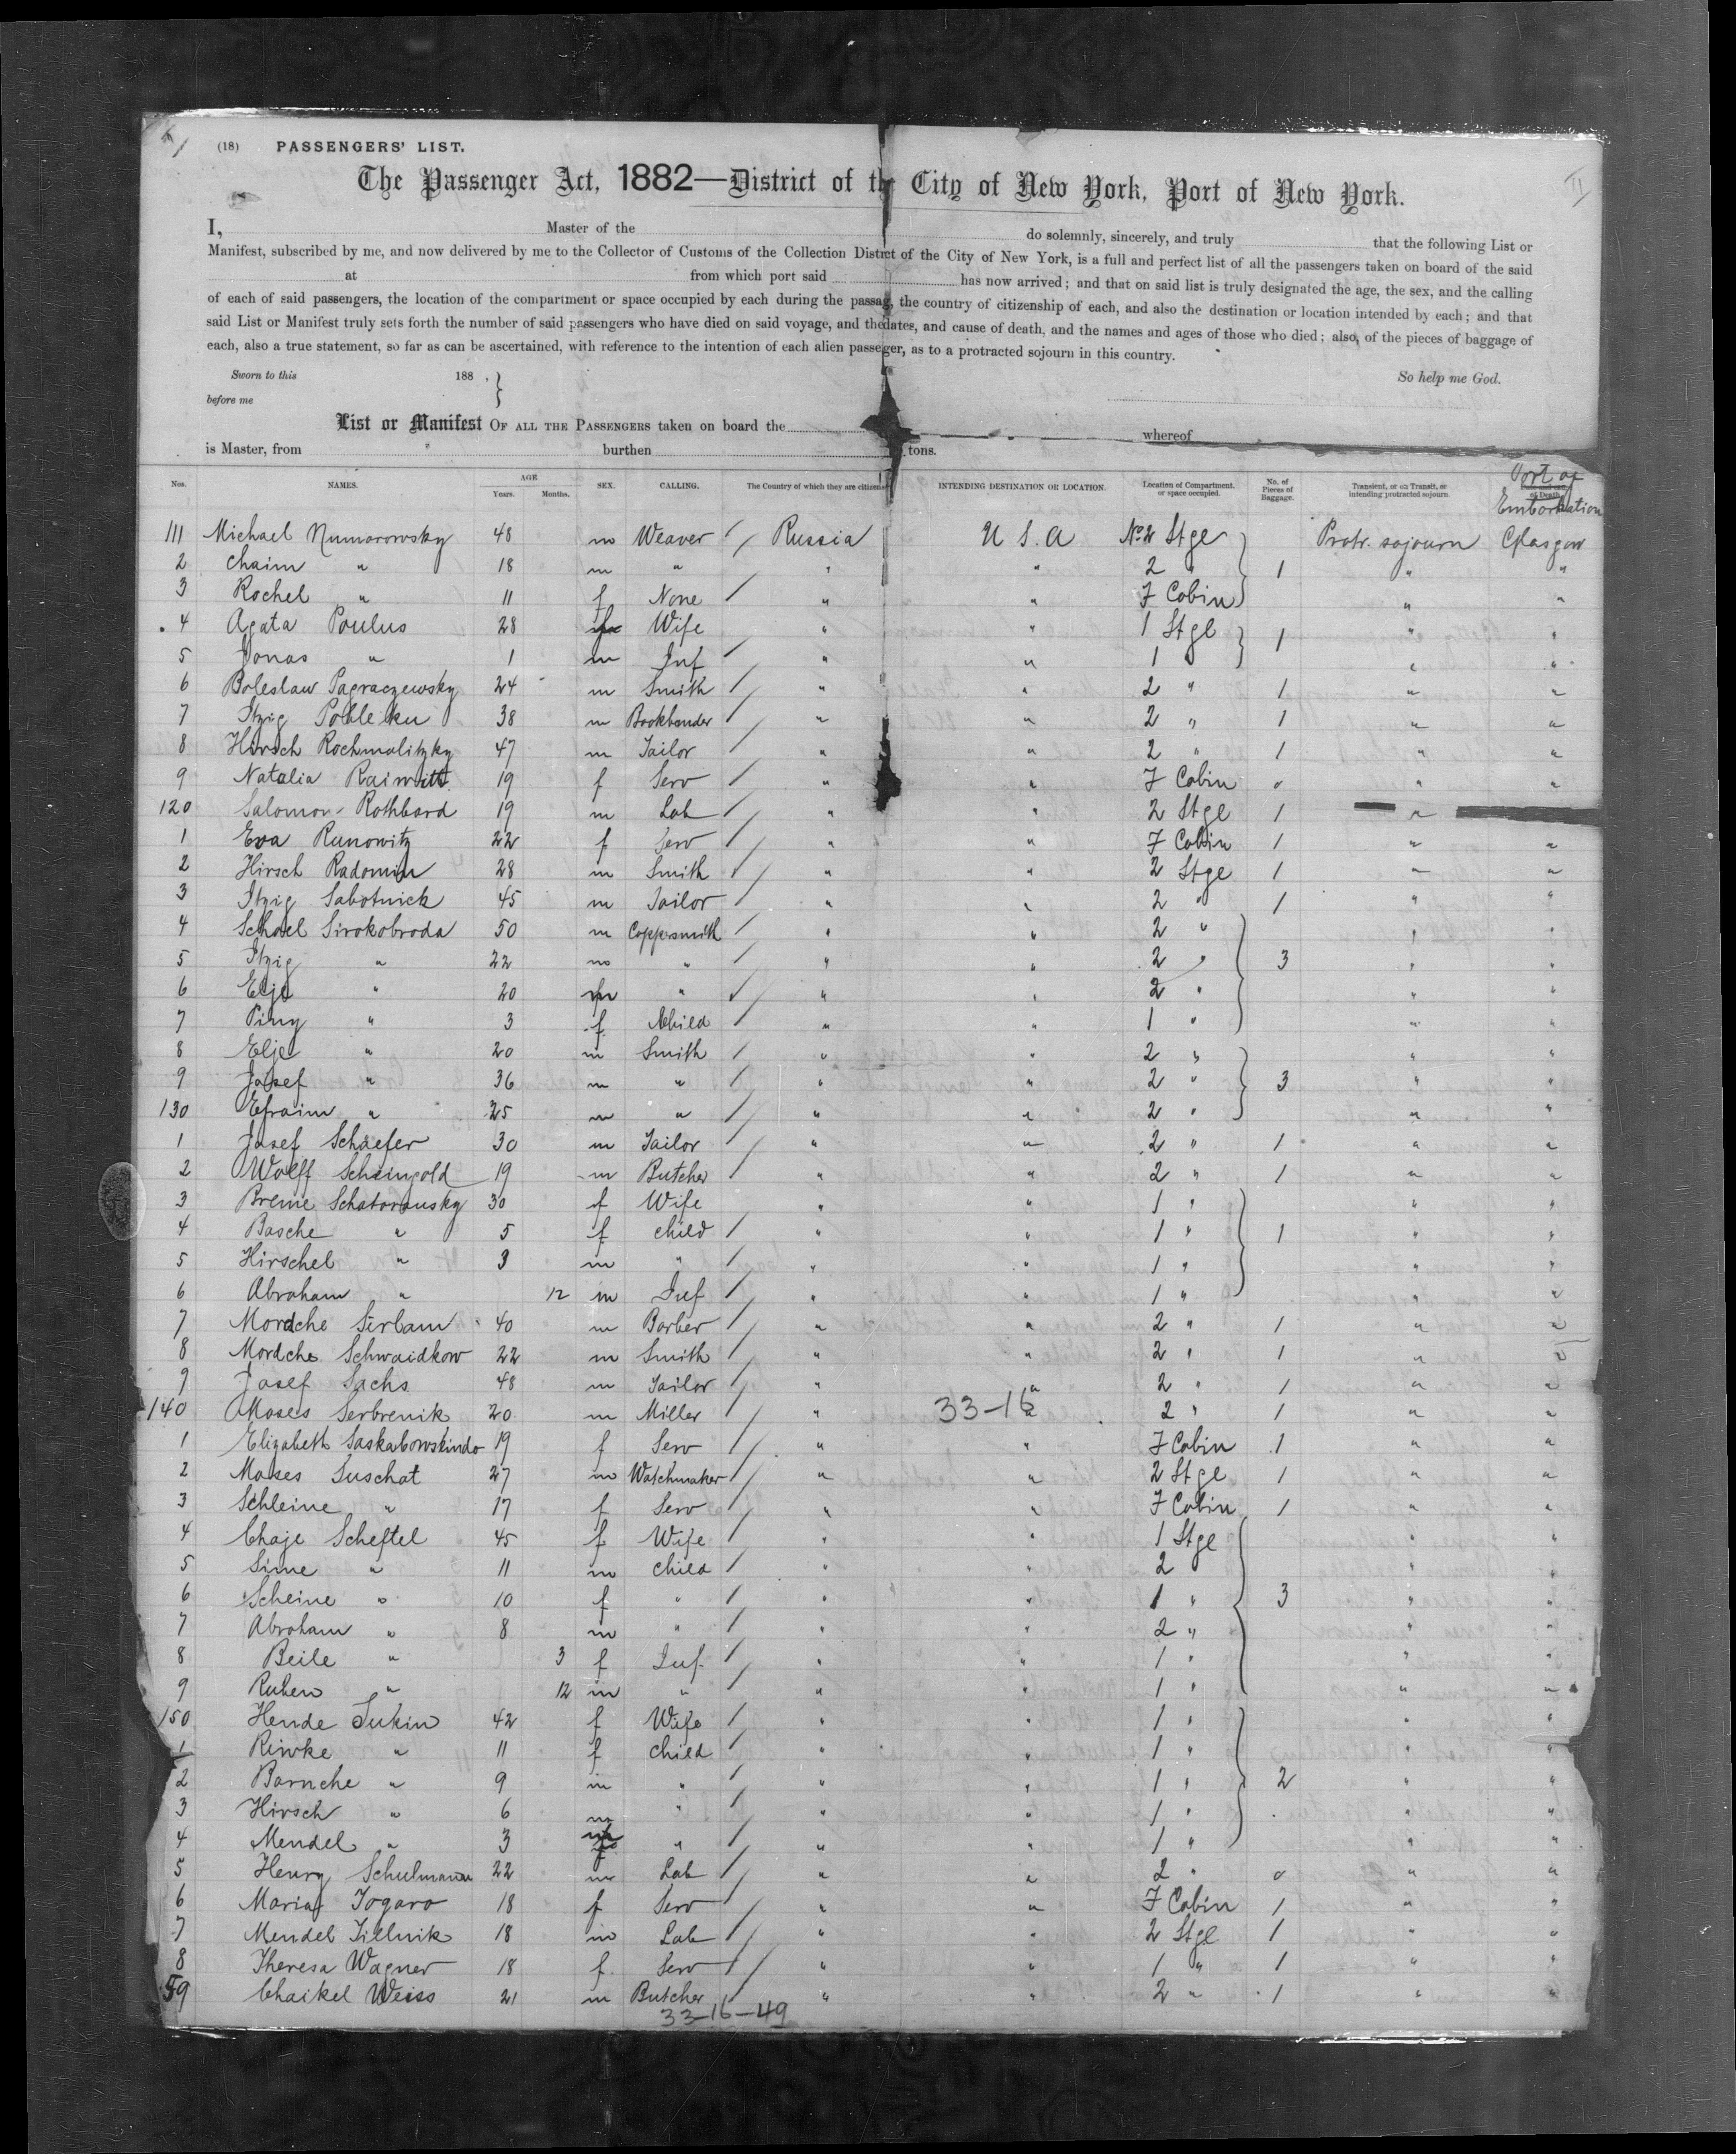 (18) PASSENGERS' LIST.
The Passenger Act, 1882—District of the City of New York, Port of New York.
I, Master of the do solemnly, sincerely, and truly that the following List or
Manifest, subscribed by me, and now delivered by me to the Collector of Customs of the Collection District of the City of New York, is a full and perfect list of all the passengers taken on board of the said
at from which port said has now arrived; and that on said list is truly designated the age, the sex, and the calling
of each of said passengers, the location of the compartment or space occupied by each during the passage, the country of citizenship of each, and also the destination or location intended by each; and that
said List or Manifest truly sets forth the number of said passengers who have died on said voyage, and the dates, and cause of death, and the names and ages of those who died; also, of the pieces of baggage of
each, also a true statement, so far as can be ascertained, with reference to the intention of each alien passenger, as to a protracted sojourn in this country.
Sworn to this 188 . So help me God.
before me
List or Manifest OF ALL THE PASSENGERS taken on board the whereof
is Master, from burthen tons.
Nos. NAMES. AGE Years. Months. SEX. CALLING. The Country of which they are citizens. INTENDING DESTINATION OR LOCATION. Location of Compartment, or space occupied. No. of Pieces of Baggage. Transient, or in Transit, or intending protracted sojourn. Port of Embarkation
111 Michael Numarowsky 48 m Weaver / Russia U S. A No 2 Stge Protr. sojourn Glasgow
2 Chaim " 18 m " " " 2 " 1 " "
3 Rochel " 11 f None / " " F Cabin " "
4 Agata Poulus 28 f Wife " " 1 Stge 1 " "
5 Jonas " 1 m Inf / " " 1 " " "
6 Boleslaw Pagraczewsky 24 m Smith / " " 2 " 1 " "
7 Itzig Pobleku 38 m Bookbender / " " 2 " 1 " "
8 Hirsch Rochmalitzky 47 m Tailor / " " 2 " 1 " "
9 Natalia Raiwitt 19 f Serv / " " F Cabin 0 " "
120 Salomon Rothbard 19 m Lab / " " 2 Stge 1 "
1 Eva Runowitz 22 f Serv / " " F Cabin 1 " "
2 Hirsch Radomin 28 m Smith / " " 2 Stge 1 " "
3 Itzig Sabotnick 45 m Tailor / " " 2 " 1 " "
4 Schael Sirokobroda 50 m Coppersmith / " " 2 " " "
5 Itzig " 22 m " / " " 2 " 3 " "
6 Elje " 20 m " / " " 2 " " "
7 Piny " 3 f Child / " " 1 " " "
8 Elje " 20 m Smith / " " 2 " " "
9 Josef " 36 m " / " " 2 " 3 " "
130 Efraim " 25 m " / " " 2 " " "
1 Josef Schaefer 30 m Tailor / " " 2 " 1 " "
2 Wolff Scheingold 19 m Butcher / " " 2 " 1 " "
3 Breine Schatoransky 30 f Wife " " 1 " " "
4 Basche " 5 f child / " " 1 " 1 " "
5 Hirschel " 3 m " / " " 1 " " "
6 Abraham " 12 m Inf / " " 1 " " "
7 Mordche Sirbam 40 m Barber / " " 2 " 1 " "
8 Mordche Schwaidkow 22 m Smith / " " 2 " 1 " "
9 Josef Sachs 48 m Tailor / " " 2 " 1 " "
140 Moses Serbrenik 20 m Miller / " 33-16 " 2 " 1 " "
1 Elizabeth Saskabowskindo 19 f Serv / " " F Cabin 1 " "
2 Moses Suschat 27 m Watchmaker / " " 2 Stge 1 " "
3 Schleine " 17 f Serv / " " F Cabin 1 " "
4 Chaje Scheftel 45 f Wife / " " 1 Stge " "
5 Sime " 11 m child / " " 2 " "
6 Scheine " 10 f " / " " 1 " 3 " "
7 Abraham " 8 m " / " " 2 " " "
8 Beile " 3 f Inf. / " " 1 " " "
9 Ruben " 12 m " / " " 1 " " "
150 Hende Sukin 42 f Wife / " " 1 " " "
1 Riwke " 11 f child / " " 1 " " "
2 Baruche " 9 m " / " " 1 " 2 " "
3 Hirsch " 6 m " / " " 1 " " "
4 Mendel " 3 m " / " " 1 " " "
5 Henry Schulmann 22 m Lab / " " 2 " 0 " "
6 Maria Togaro 18 f Serv / " " F Cabin 1 " "
7 Mendel Tillnik 18 m Lab / " " 2 Stge 1 " "
8 Theresa Wagner 18 f Serv / " " 1 " 1 " "
59 Chaikel Weiss 21 m Butcher / " " 2 " 1 " "
33-16-49